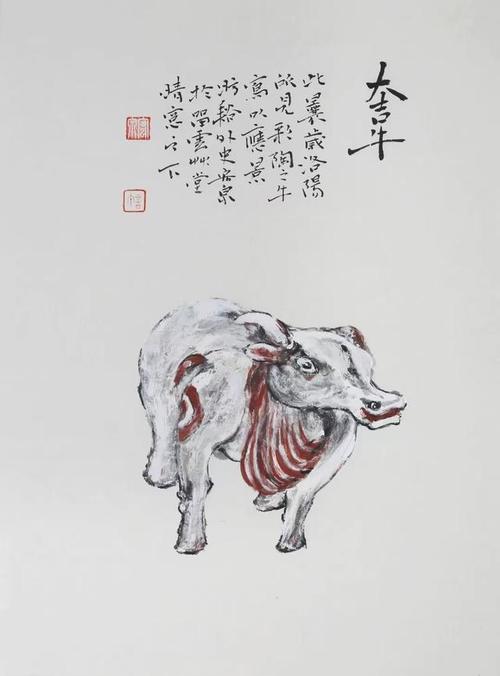 大吉牛
此曩歲洛陽
所見彩陶之牛
寫以應景
谿外史
於留雲艸堂
晴窓之下